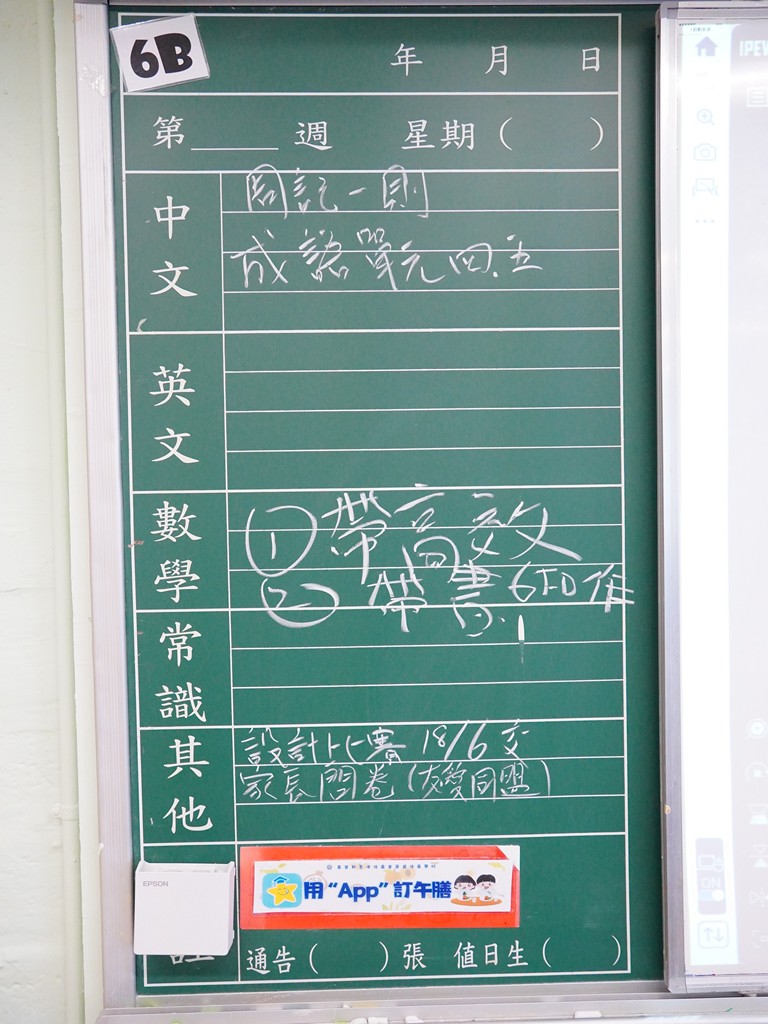 6B
年 月 日
第____週 星期( )
中文
周記一則
成語單元四、五
英文
數學
① 帶高效
② 帶書 6下D 作
常識
其他
設計比賽 18/6 交
家長問卷(友愛同盟)
EPSON
用“App”訂午膳
註
通告( )張 值日生( )